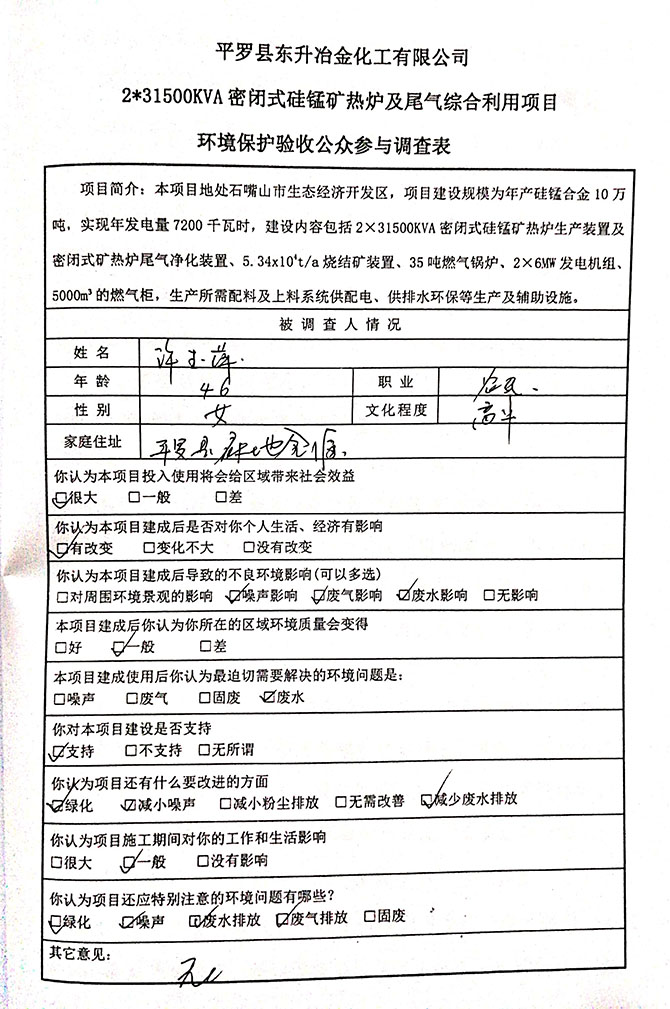 平罗县东升冶金化工有限公司
2*31500KVA密闭式硅锰矿热炉及尾气综合利用项目
环境保护验收公众参与调查表
项目简介：本项目地处石嘴山市生态经济开发区，项目建设规模为年产硅锰合金10万
吨，实现年发电量7200千瓦时，建设内容包括2×31500KVA密闭式硅锰矿热炉生产装置及
密闭式矿热炉尾气净化装置、5.34x10⁴t/a烧结矿装置、35吨燃气锅炉、2×6MW发电机组、
5000m³的燃气柜，生产所需配料及上料系统供配电、供排水环保等生产及辅助设施。
被调查人情况
姓名 许玉萍
年龄 46 职业 农民
性别 女 文化程度 高中
家庭住址 平罗县
你认为本项目投入使用将会给区域带来社会效益
☑很大 □一般 □差
你认为本项目建成后是否对你个人生活、经济有影响
☑有改变 □变化不大 □没有改变
你认为本项目建成后导致的不良环境影响(可以多选)
□对周围环境景观的影响 ☑噪声影响 ☑废气影响 ☑废水影响 □无影响
本项目建成后你认为你所在的区域环境质量会变得
□好 ☑一般 □差
本项目建成使用后你认为最迫切需要解决的环境问题是：
□噪声 □废气 □固废 ☑废水
你对本项目建设是否支持
☑支持 □不支持 □无所谓
你认为项目还有什么要改进的方面
☑绿化 ☑减小噪声 □减小粉尘排放 □无需改善 ☑减少废水排放
你认为项目施工期间对你的工作和生活影响
□很大 ☑一般 □没有影响
你认为项目还应特别注意的环境问题有哪些？
☑绿化 ☑噪声 ☑废水排放 ☑废气排放 □固废
其它意见：
无